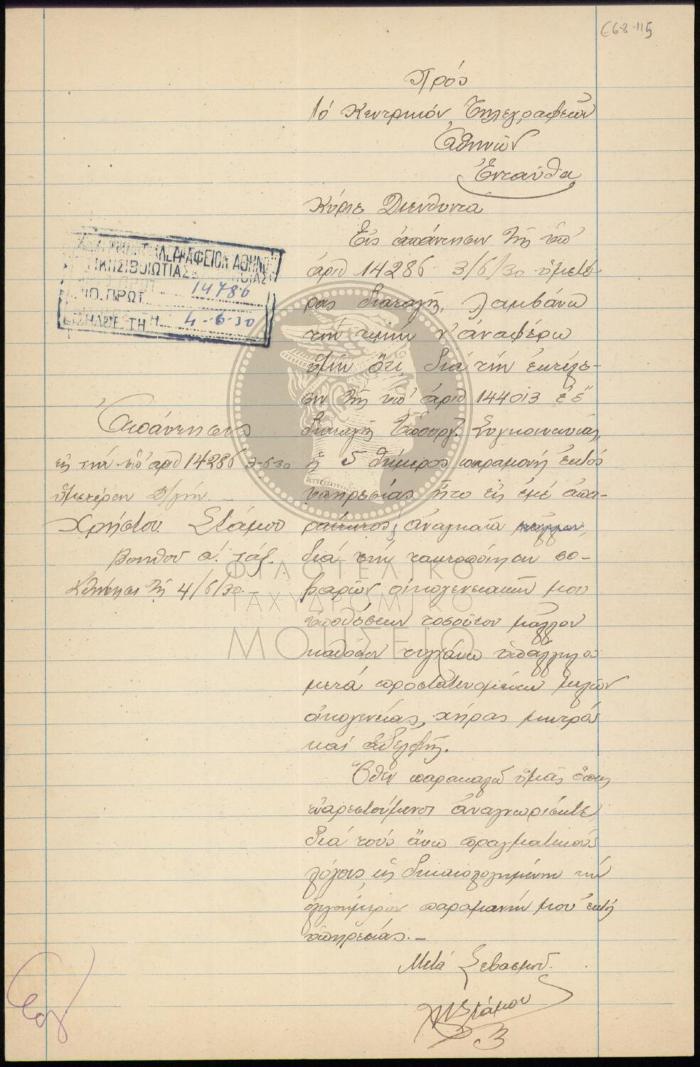 Πρός
Τό Κεντρικόν Τηλεγραφείον
Αθηνών
Ενταύθα
Κύριε Διευθυντά
Εις απάντησιν της υπ'
άριθ 14286 3/6/30 υμετέ-
ρας διαταγής, λαμβάνω
την τιμήν ν' αναφέρω
υμίν ότι, διά την εκτέλε-
σιν της υπ' άριθ 144013 ε.έ.
διαταγής Υπουργ. Συγκοινωνίας
η 5 θήμερος παραμονή εκτός
υπηρεσίας ήτο εις εμέ απα-
ραίτητος, αναγκαία
διά την τακτοποίησιν σο-
βαρών οικογενειακών μου
υποθέσεων τοσούτον μάλλον
καθόσον τυγχάνω υπάλληλος
μετά προστατευομένων μελών
οικογενείας, χήρας μητρός
και αδελφής.
Όθεν παρακαλώ υμάς όπως
ευαρεστούμενοι αναγνωρίσητε
διά τους άνω πραγματικούς
λόγους ως δικαιολογημένην την
ολιγοήμερον παραμονήν μου εκτός
υπηρεσίας.—
Μετά Σεβασμού.
Χρ Στάμου
ΤΗΛΕΓΡΑΦΕΙΟΝ ΑΘΗΝΩΝ
ΑΡ. ΠΡΩΤ. 14786
ΕΙΣΗΛΘΕ ΤΗ 4-6-30
Απάντησις
εις την υπ' άριθ 14286 3-6-30
υμετέραν δ/γήν
Χρήστου Στάμου
βοηθού α' ταξ.
Αθήνησι τη 4/6/30.—
ΦΙΛΟΤΕΛΙΚΟ
ΤΑΧΥΔΡΟΜΙΚΟ
ΜΟΥΣΕΙΟ